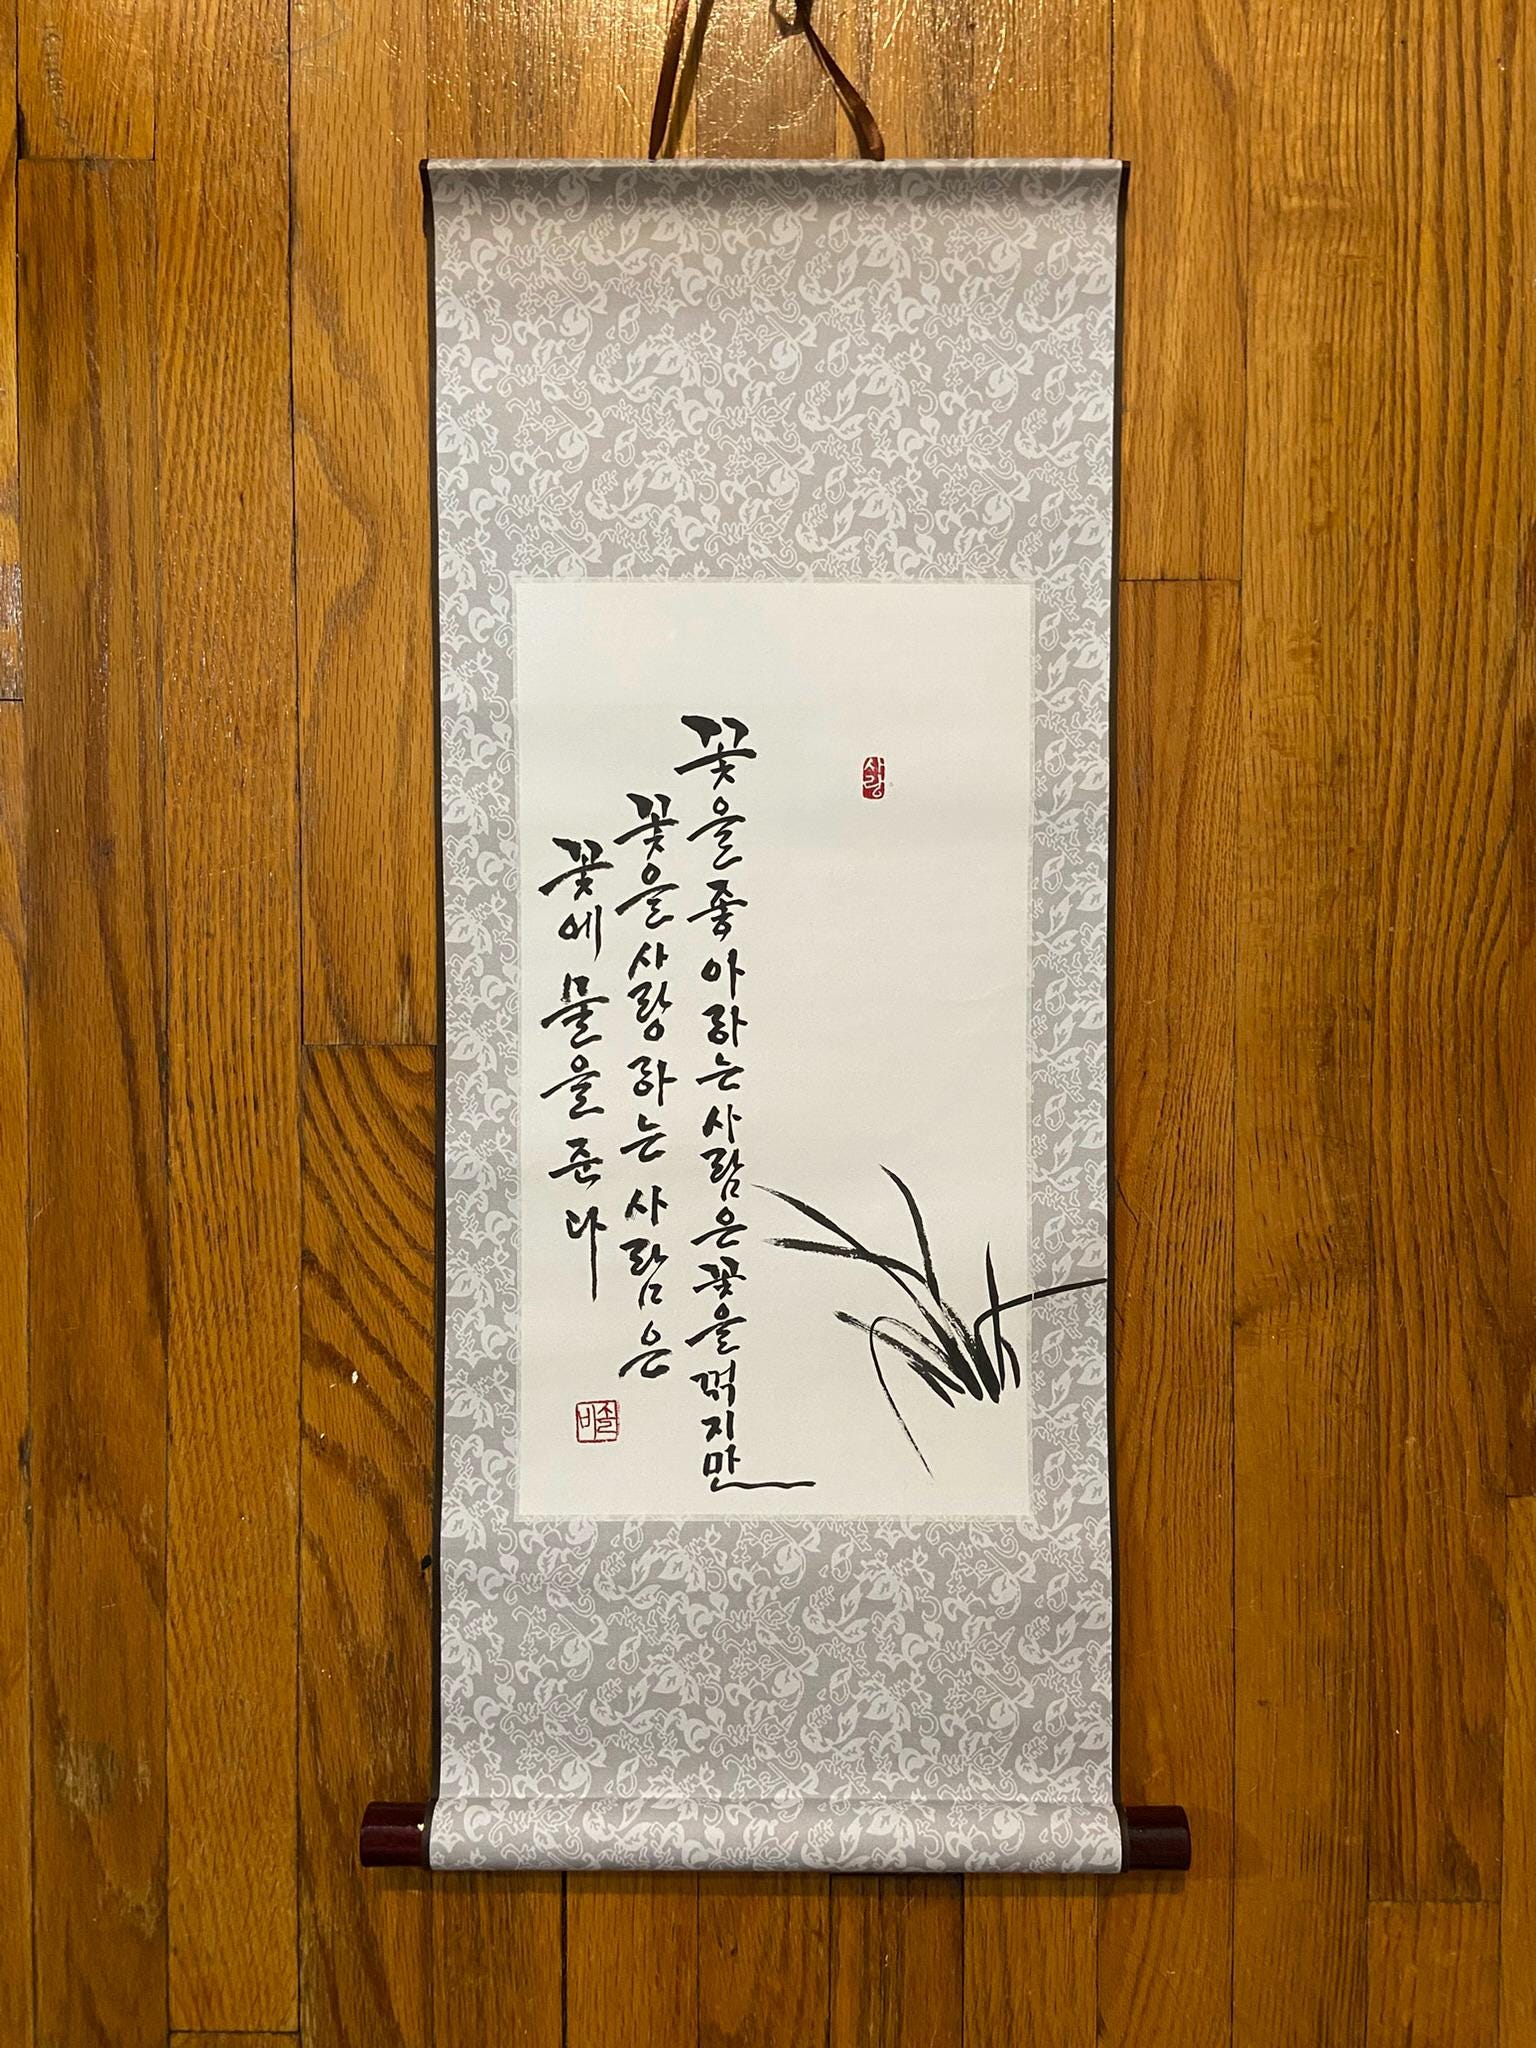 사랑
꽃을 좋아하는 사람은 꽃을 꺾지만
꽃을 사랑하는 사람은
꽃에 물을 준다
솔비